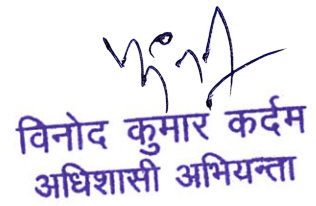 विनोद कुमार कर्दम
अधिशासी अभियन्ता